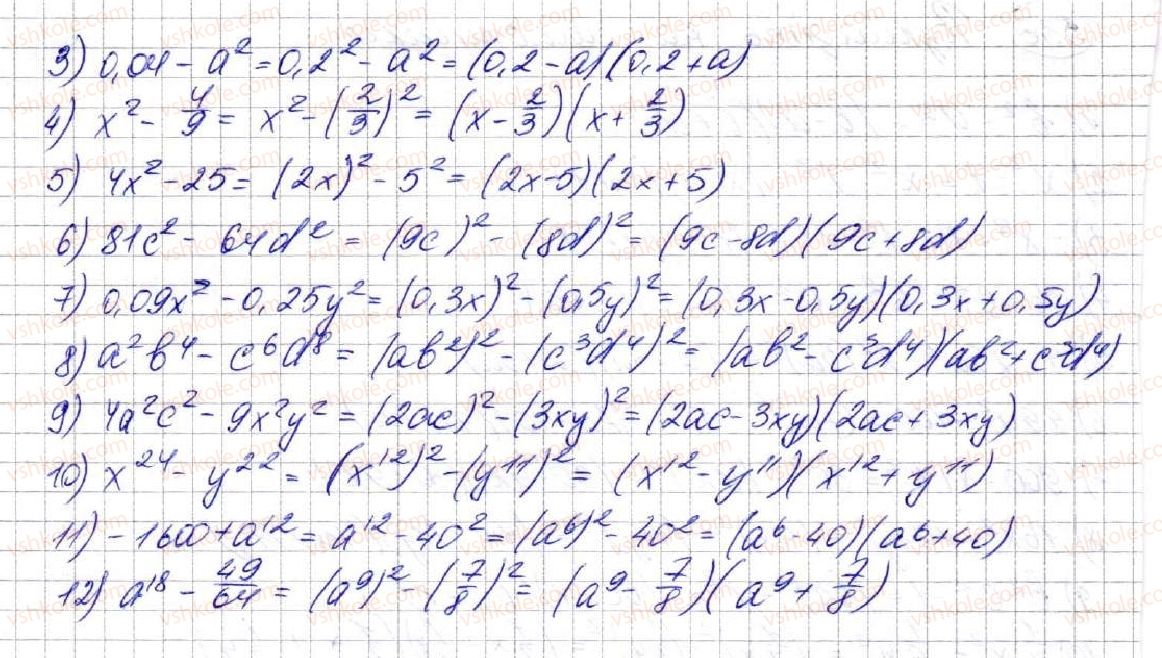 3) 0,04 - a² = 0,2² - a² = (0,2 - a)(0,2 + a)
4) x² - 4/9 = x² - (2/3)² = (x - 2/3)(x + 2/3)
5) 4x² - 25 = (2x)² - 5² = (2x - 5)(2x + 5)
6) 81c² - 64d² = (9c)² - (8d)² = (9c - 8d)(9c + 8d)
7) 0,09x² - 0,25y² = (0,3x)² - (0,5y)² = (0,3x - 0,5y)(0,3x + 0,5y)
8) a²b⁴ - c⁶d⁸ = (ab²)² - (c³d⁴)² = (ab² - c³d⁴)(ab² + c³d⁴)
9) 4a²c² - 9x²y² = (2ac)² - (3xy)² = (2ac - 3xy)(2ac + 3xy)
10) x²⁴ - y²² = (x¹²)² - (y¹¹)² = (x¹² - y¹¹)(x¹² + y¹¹)
11) - 1600 + a¹² = a¹² - 40² = (a⁶)² - 40² = (a⁶ - 40)(a⁶ + 40)
12) a¹⁸ - 49/64 = (a⁹)² - (7/8)² = (a⁹ - 7/8)(a⁹ + 7/8)
vshkole.com